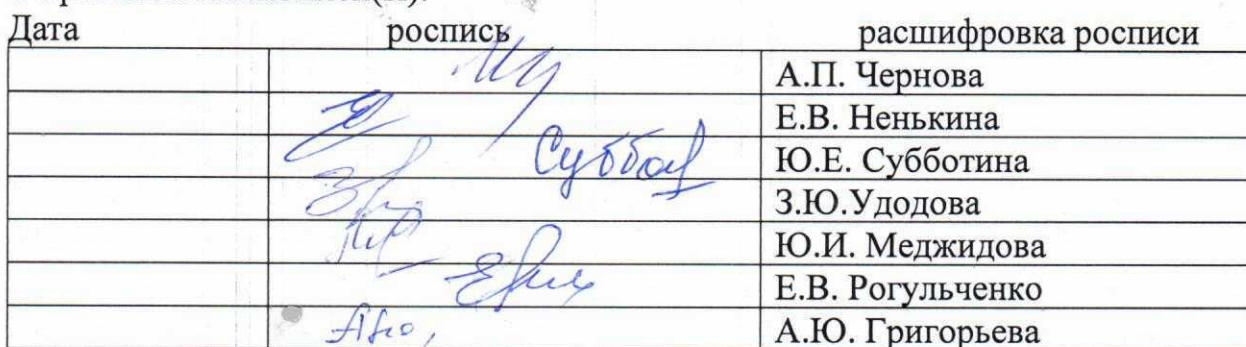 Дата роспись расшифровка росписи
А.П. Чернова
Е.В. Ненькина
Суббо
Ю.Е. Субботина
З.Ю.Удодова
Ю.И. Меджидова
Е.В. Рогульченко
А.Ю. Григорьева